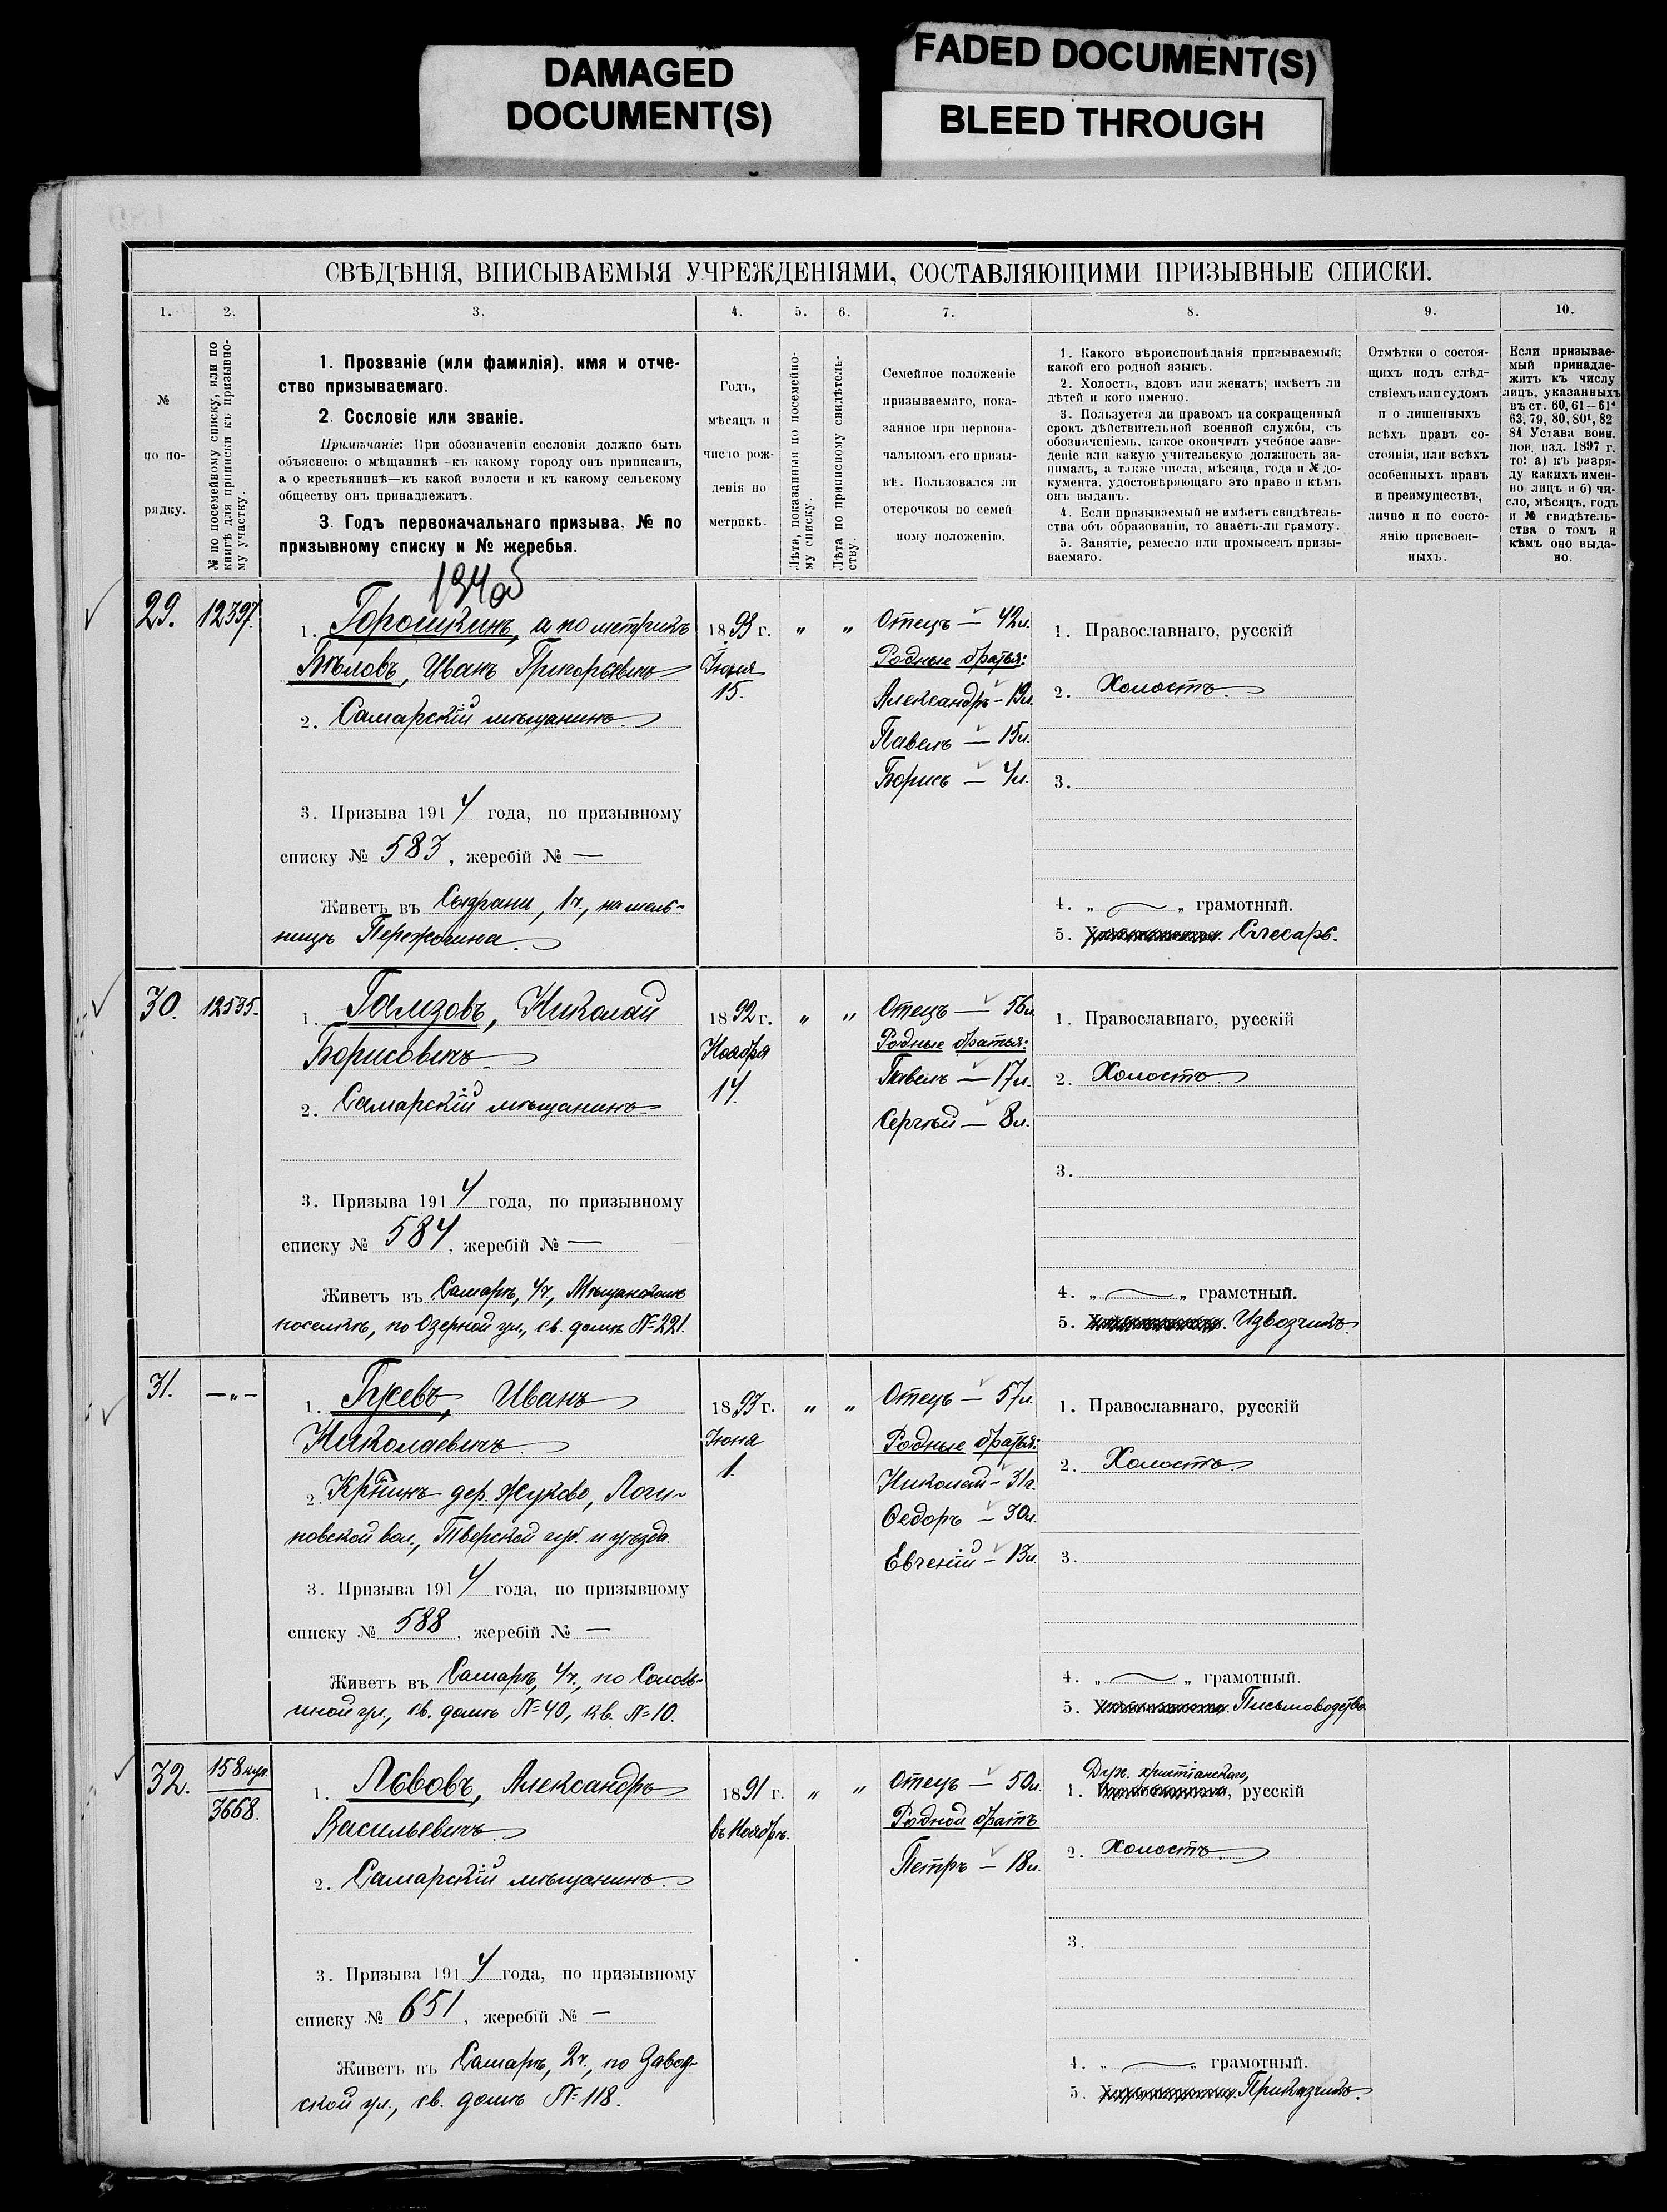 DAMAGED
DOCUMENT(S)
FADED DOCUMENT(S)
BLEED THROUGH
СВѢДѢНІЯ, ВПИСЫВАЕМЫЯ УЧРЕЖДЕНІЯМИ, СОСТАВЛЯЮЩИМИ ПРИЗЫВНЫЕ СПИСКИ.
1. 2. 3. 4. 5. 6. 7. 8. 9. 10.
№
по по-
рядку.
№ по посемейному списку, или по
книгѣ для приписки къ призывно-
му участку.
1. Прозваніе (или фамилія), имя и отче-
ство призываемаго.
2. Сословіе или званіе.
Примѣчаніе: При обозначеніи сословія должно быть
объяснено: о мѣщанинѣ -къ какому городу онъ приписанъ,
а о крестьянинѣ—къ какой волости и къ какому сельскому
обществу онъ принадлежитъ.
3. Годъ первоначальнаго призыва, № по
призывному списку и № жеребья.
Годъ,
мѣсяцъ и
число рож-
денія по
метрикѣ.
Лѣта, показанныя по посемейно-
му списку.
Лѣта по приписному свидѣтель-
ству.
Семейное положеніе
призываемаго, пока-
занное при первона-
чальномъ его призы-
вѣ. Пользовался ли
отсрочкою по семей
ному положенію.
1. Какого вѣроисповѣданія призываемый;
какой его родной языкъ.
2. Холостъ, вдовъ или женатъ; имѣетъ ли
дѣтей и кого именно.
3. Пользуется ли правомъ на сокращенный
срокъ дѣйствительной военной службы, съ
обозначеніемъ, какое окончилъ учебное заве-
деніе или какую учительскую должность за-
нималъ, а также числа, мѣсяца, года и № до-
кумента, удостовѣряющаго это право и кѣмъ
онъ выданъ.
4. Если призываемый не имѣетъ свидѣтель-
ства объ образованіи, то знаетъ-ли грамоту.
5. Занятіе, ремесло или промыселъ призы-
ваемаго.
Отмѣтки о состоя-
щихъ подъ слѣд-
ствіемъ или судомъ
и о лишенныхъ
всѣхъ правъ со-
стоянія, или всѣхъ
особенныхъ правъ
и преимуществъ,
лично и по состо-
янію присвоен-
ныхъ.
Если призывае-
мый принадле-
житъ къ числу
лицъ, указанныхъ
въ ст. 60, 61—61⁴
63, 79, 80, 80¹, 82
84 Устава воин.
пов. изд. 1897 г.
то: а) къ разря-
ду какихъ имен-
но лицъ и б) чи-
сло, мѣсяцъ, годъ
и № свидѣтель-
ства о томъ и
кѣмъ оно выда-
но.
29. 12397.
1. Горошкинъ, а по метрикѣ
Бѣловъ, Иванъ Григорьевичъ
2. Самарскій мѣщанинъ.
3. Призыва 1914 года, по призывному
списку № 583, жеребій № —
Живетъ въ Сызрани, 1ч., на мель-
ницѣ Пережогина.
1893 г. " "
Іюня
15.
Отецъ — 42л.
Родные братья:
Александръ - 19л.
Павелъ — 15л.
Борисъ — 4л.
1. Православнаго, русскій
2. Холостъ.
3.
4. " " грамотный.
5. Слесарь.
30. 12535.
1. Гамзовъ, Николай
Борисовичъ.
2. Самарскій мѣщанинъ
3. Призыва 1914 года, по призывному
списку № 584, жеребій № —
Живетъ въ Самарѣ, 4ч., Мѣщанскомъ
поселкѣ, по Озерной ул., св. домъ № 221.
1892 г. " "
Ноября
14.
Отецъ — 56л.
Родные братья:
Павелъ — 17л.
Сергѣй — 8л.
1. Православнаго, русскій
2. Холостъ.
3.
4. " " грамотный.
5. Извозчикъ.
31. — " —
1. Гуревъ, Иванъ
Николаевичъ.
2. Кр-нинъ дер. Жуково, Логи-
новской вол., Тверской губ. и уѣзда.
3. Призыва 1914 года, по призывному
списку № 588, жеребій № —
Живетъ въ Самарѣ, 4ч., по Соловь-
иной ул., св. домъ № 40, кв. № 10.
1893 г. " "
Іюня
1.
Отецъ — 57л.
Родные братья:
Николай - 31г.
Ѳедоръ — 30л.
Евгеній — 13л.
1. Православнаго, русскій
2. Холостъ.
3.
4. " " грамотный.
5. Письмоводство.
32. 158 куп.
3668.
1. Львовъ, Александръ
Васильевичъ.
2. Самарскій мѣщанинъ.
3. Призыва 1914 года, по призывному
списку № 651, жеребій № —
Живетъ въ Самарѣ, 2ч., по Завод-
ской ул., св. домъ № 118.
1891 г. " "
въ Ноябрѣ.
Отецъ — 50л.
Родной братъ
Петръ — 18л.
Дух. христіанскаго,
1. русскій
2. Холостъ.
3.
4. " " грамотный.
5. Приказчикъ.